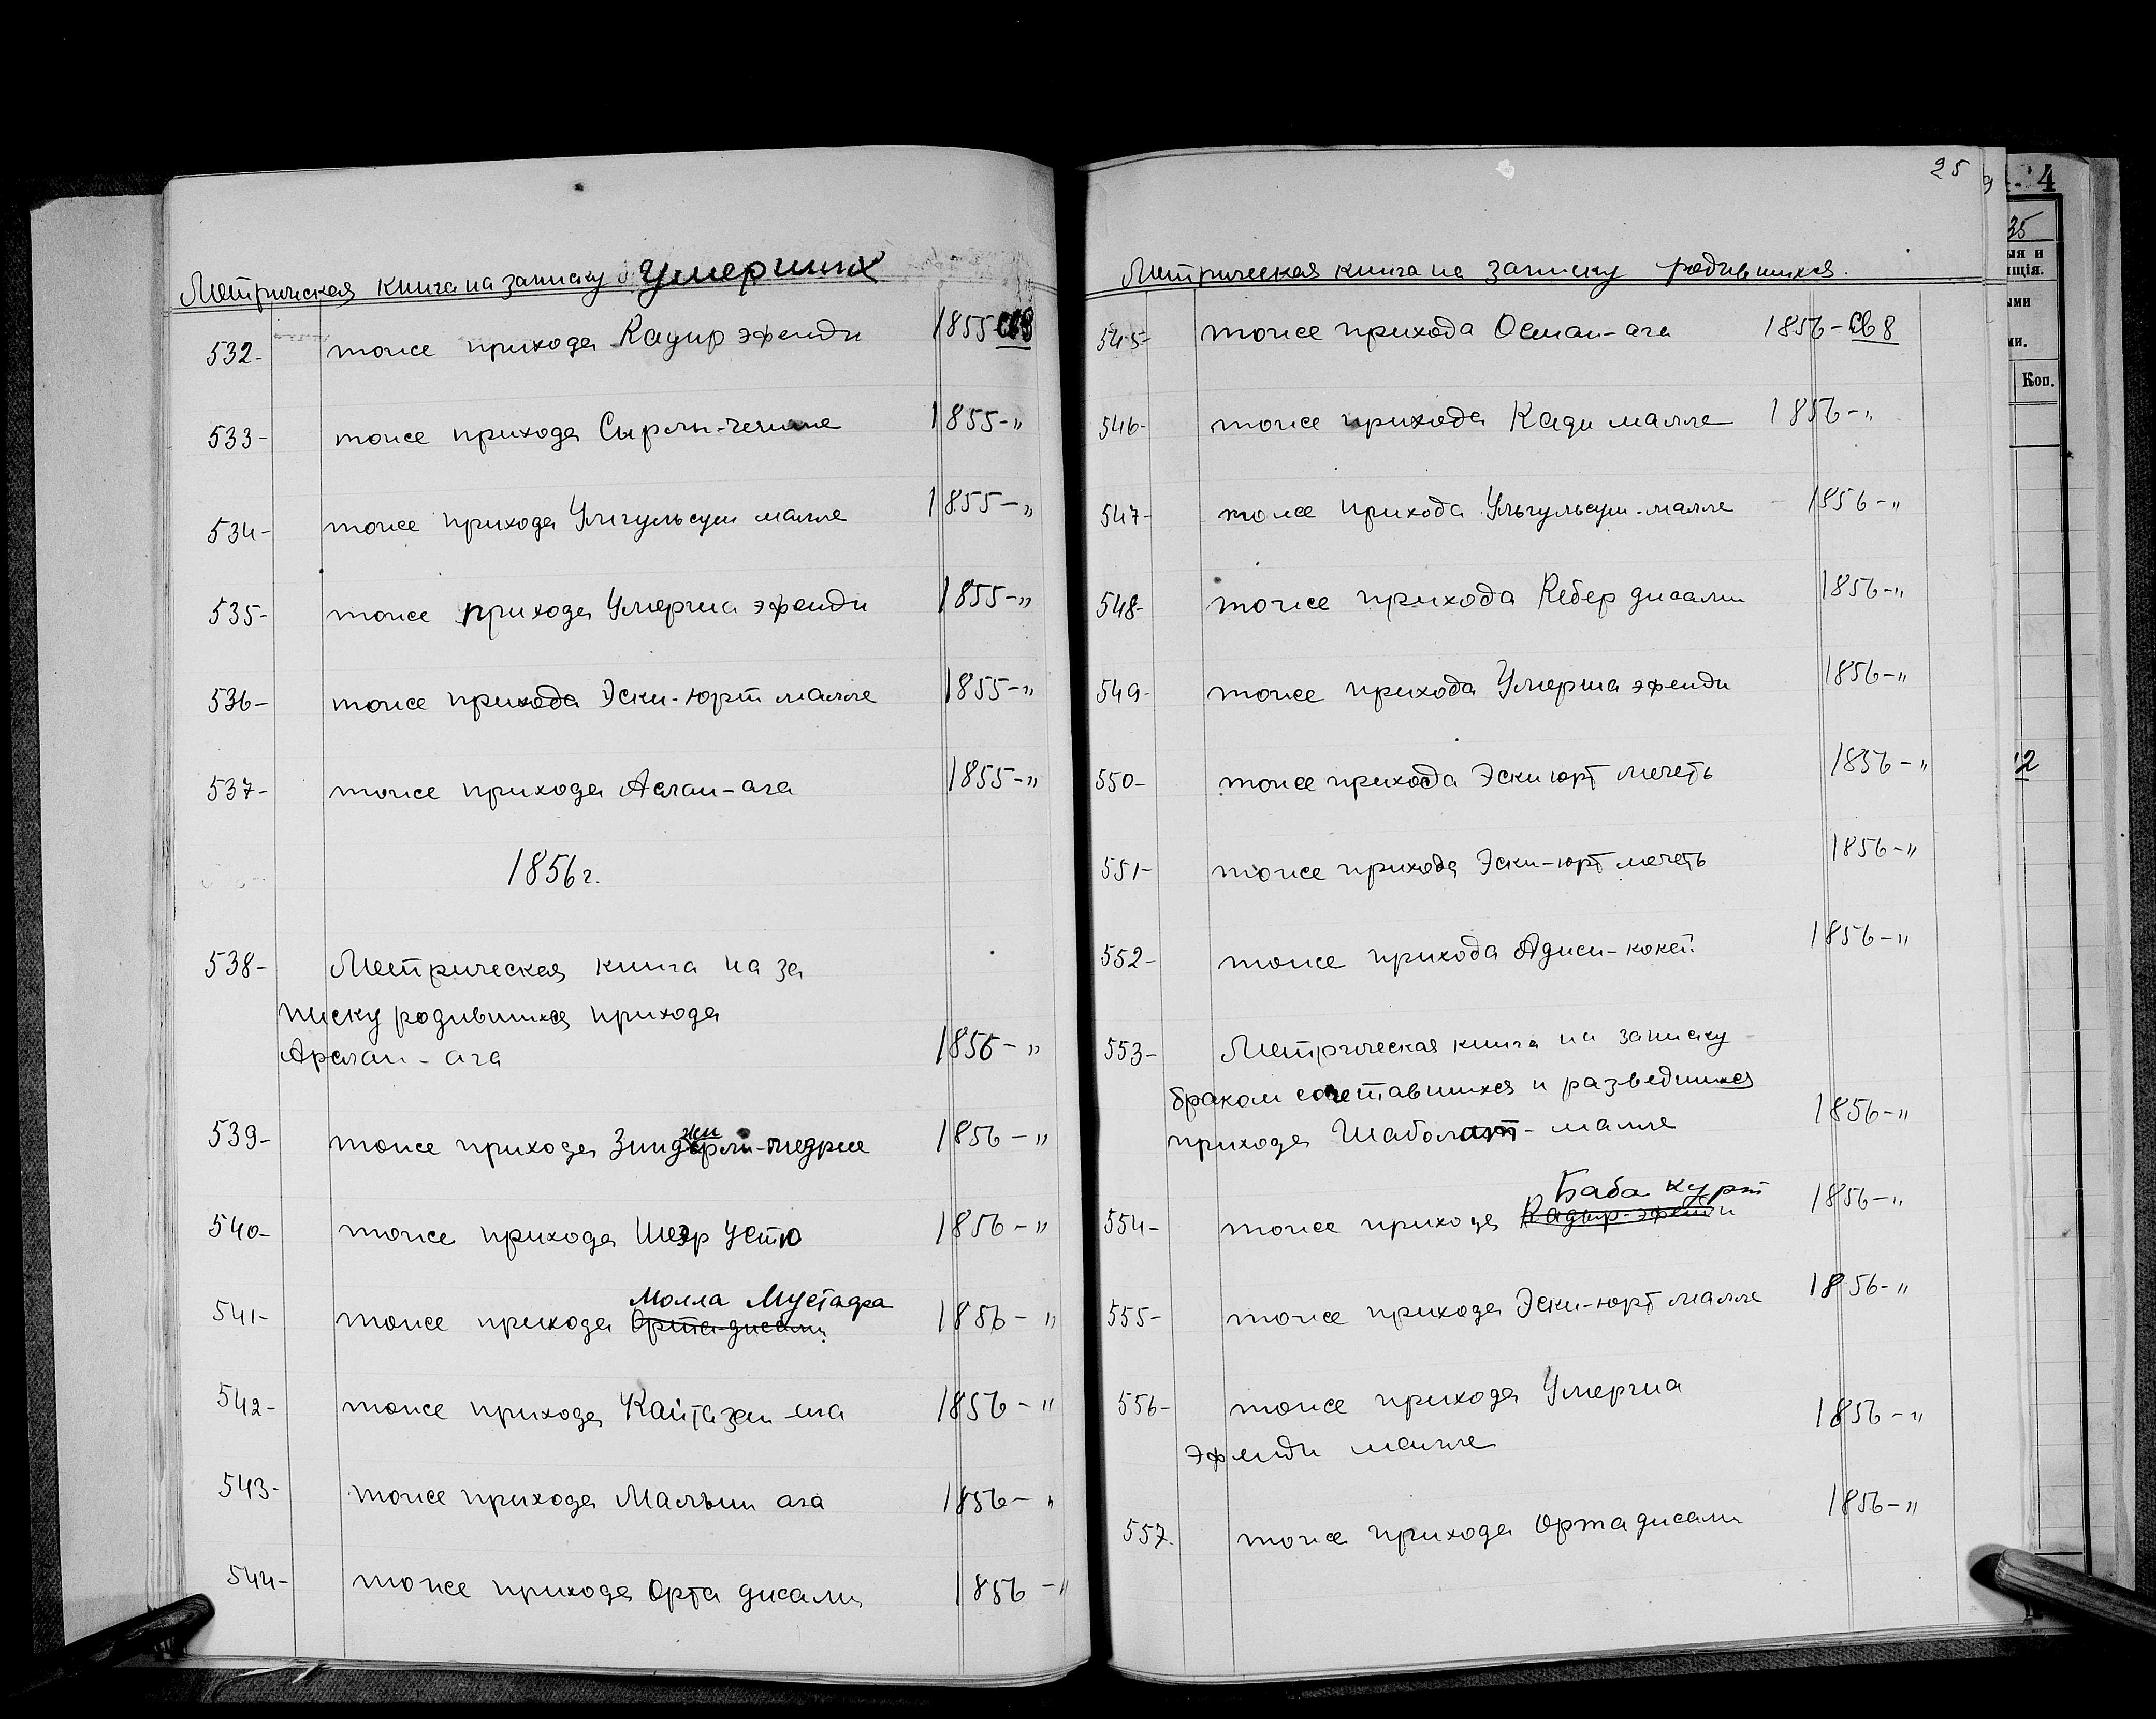 Метрическая книга на записку умерших
532- тоже прихода Кадыр эфенди 1855-св8
533- тоже прихода Сырлы-чешме 1855-"
534- тоже прихода Умгульсум малле 1855-"
535- тоже прихода Умерша эфенди 1855-"
536- тоже прихода Эски-юрт малле 1855-"
537- тоже прихода Аслан-ага 1855-"
1856 г.
538- Метрическая книга на за
писку родившихся прихода
Арслан-ага 1856-"
539- тоже прихода 1856-"
540- тоже прихода Шеэр Устю 1856-"
Молла Мустафа
541- тоже прихода Орта-джами 1856-"
542- тоже прихода Кайтазан-ага 1856-"
543- тоже прихода Малъши ага 1856-"
544- тоже прихода Орта джами 1856-"
25
Метрическая книга на записку родившихся.
545- тоже прихода Осман-ага 1856-св8
546- тоже прихода Кади малле 1856-"
547- тоже прихода Ульгульсум-малле 1856-"
548- тоже прихода Кебер джами 1856-"
549- тоже прихода Умерша эфенди 1856-"
550- тоже прихода Эски юрт мечеть 1856-"
551- тоже прихода Эски-юрт мечеть 1856-"
552- тоже прихода Аджи-кокей 1856-"
553- Метрическая книга на записку
браком сочетавшихся и разведшихся
прихода Шаболат-малле 1856-"
Баба курт
554- тоже прихода Кадыр-эфенди 1856-"
555- тоже прихода Эски-юрт малле 1856-"
556- тоже прихода Умерша
эфенди малле 1856-"
557. тоже прихода Орта джами 1856-"
4
35
Коп.
12